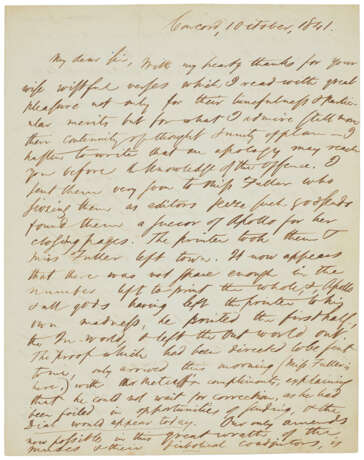 Concord, 1 October, 1841.
My dear Sir, With my hearty thanks for your
wise wistful verses which I read with great
pleasure not only for their tunefulness & particu
lar merits but for what I admire still more
their continuity of thought & unity of plan — I
hasten to write that an apology may reach
you before a knowledge of the offence. I
sent them very soon to Miss Fuller who
seizing them as editors seize such godsends
found them a succor of Apollo for her
closing pages. The printer took them &
Miss Fuller left town. It now appears
that there was not space enough in the
number left to print the whole, & Apollo
& all gods having left the printer to his
own madness, he printed the first half
the In-world, & left the Out-world out.
The proof which had been directed to be sent
to me, only arrived this morning (Miss Fuller is
here,) with Mr Metcalf's compliments, explaining
that he could not wait for correction, as he had
been foiled in opportunities of sending, & the
Dial would appear today. Our only amends
now possible, in this great wrath of the
muses & their diabolical coadjutors, is